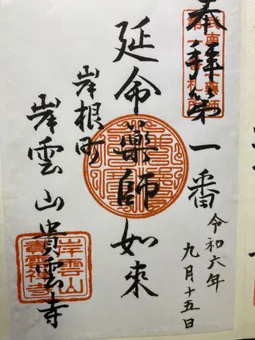 奉拝第一番
令和六年
九月十五日
延命藥師如來
岸根町
岸雲山貴雲寺
岸雲山
貴雲禅寺